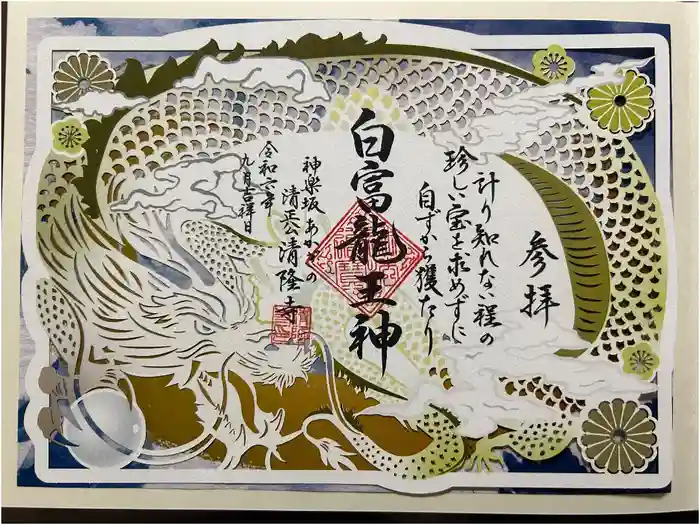 参拝
計り知れない程の
珍しい宝を求めずに
自ずから獲たり
白富龍王神
神楽坂あかぎの
清正公清隆寺
令和六年
九月吉祥日